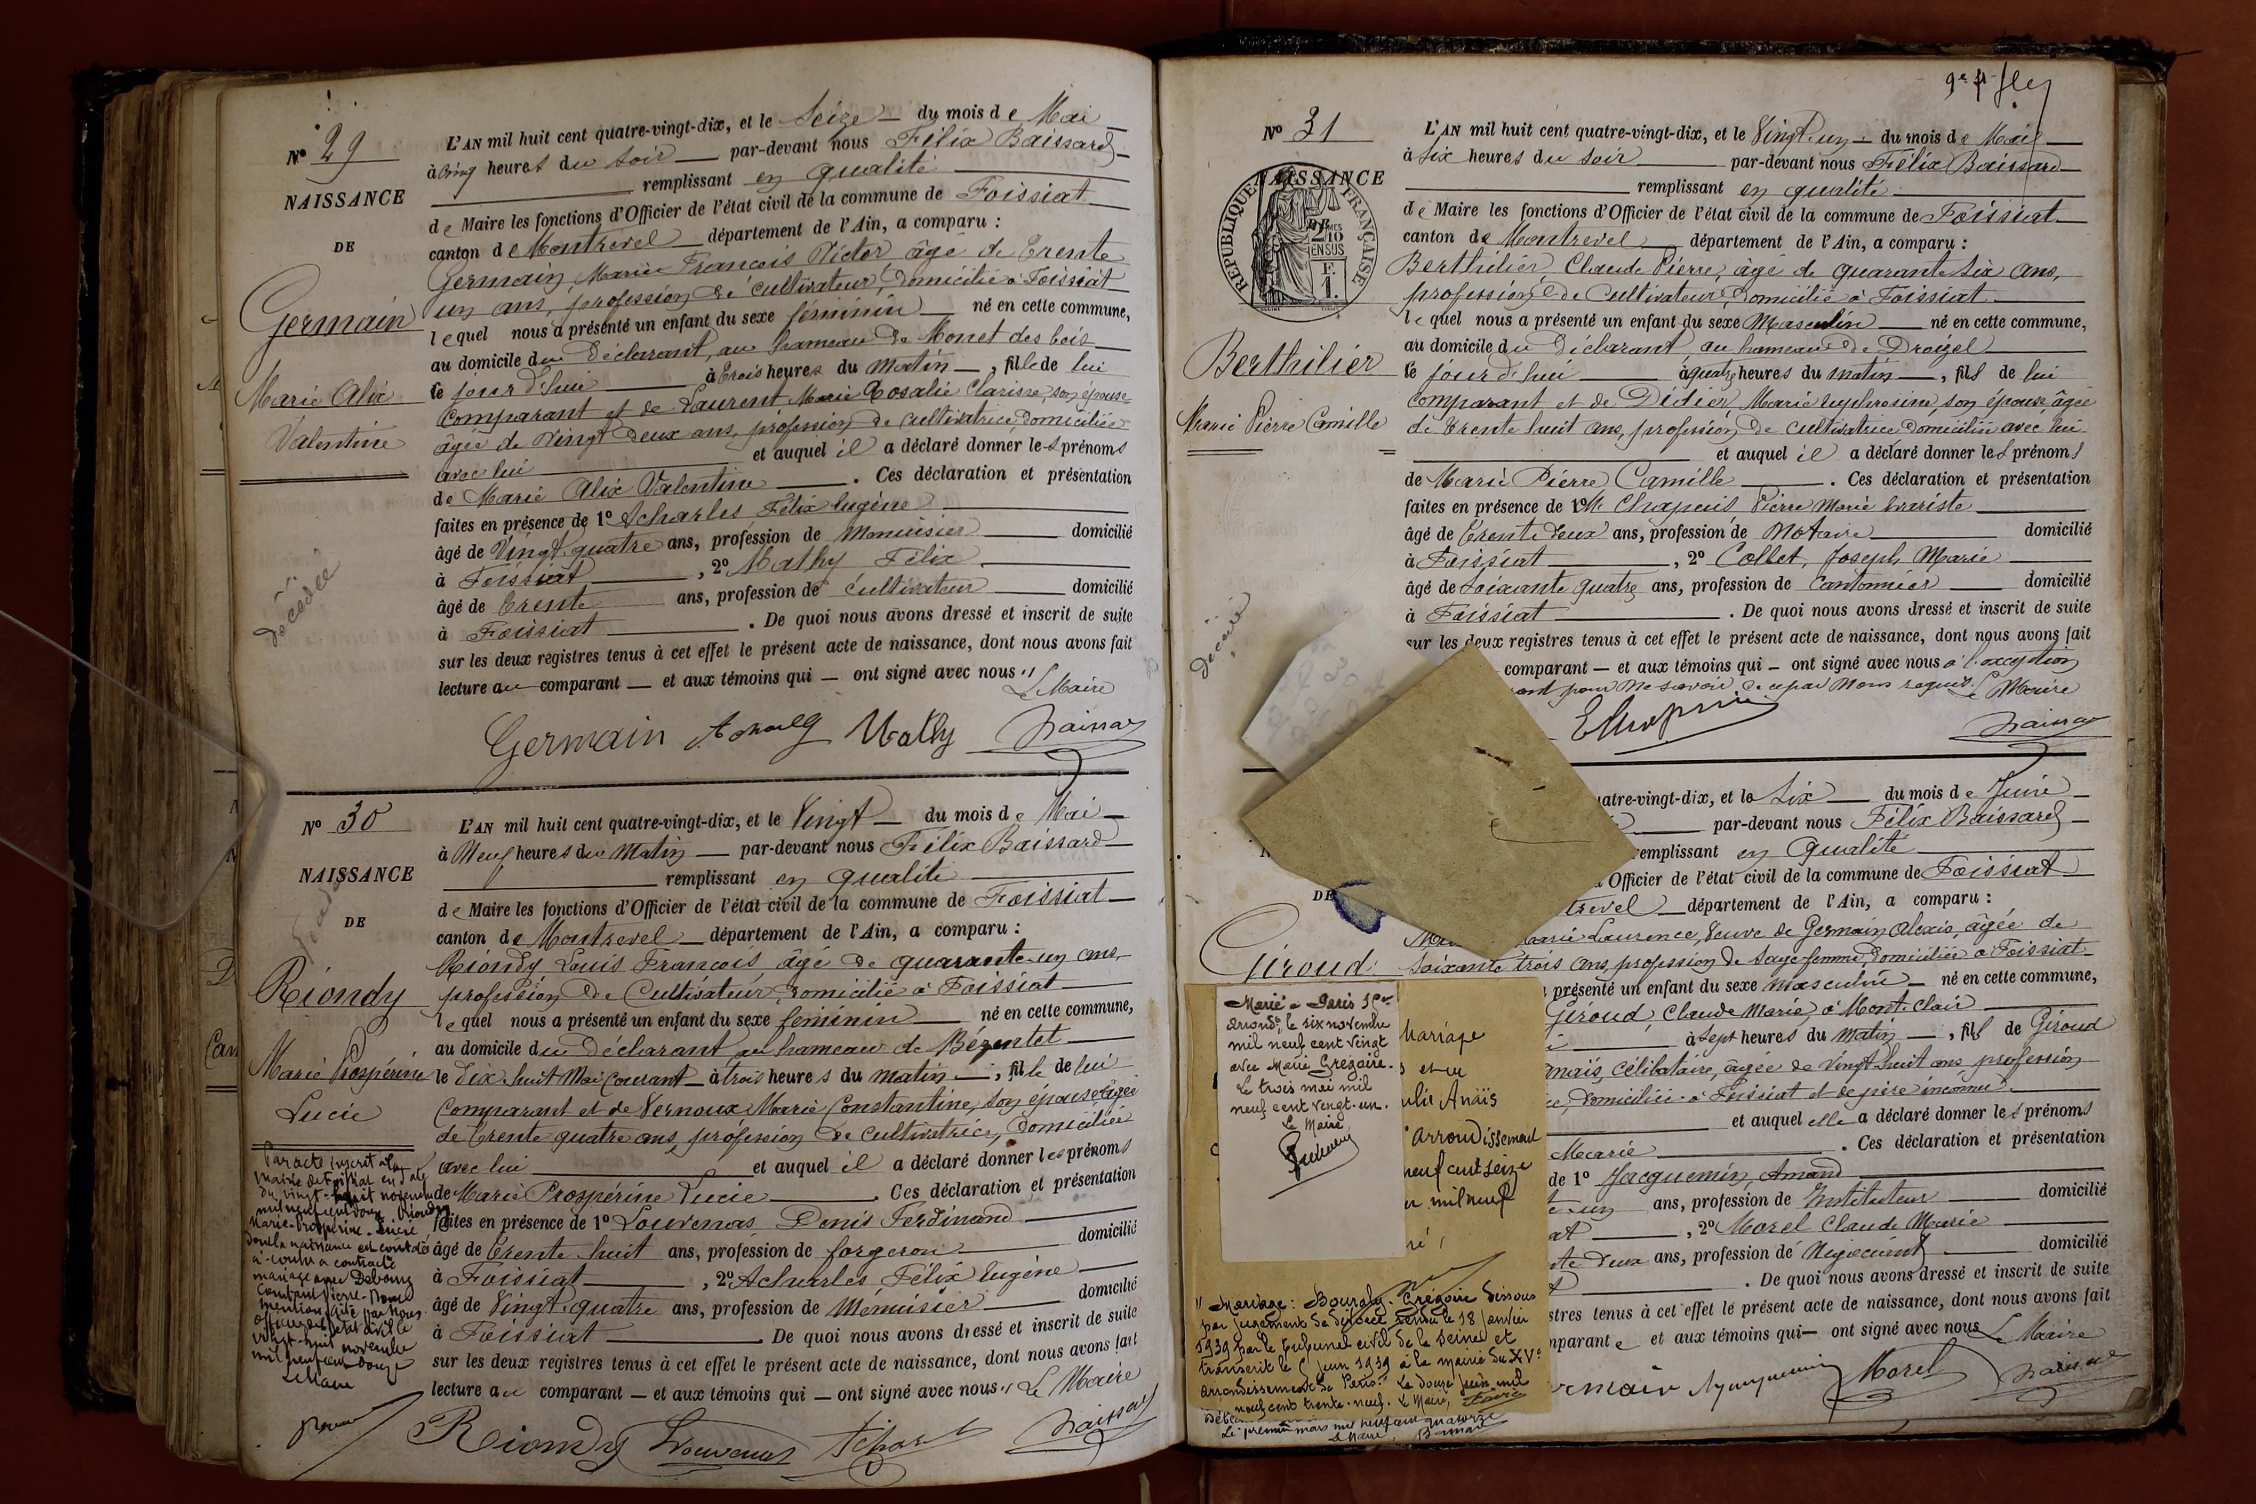 N° 29
NAISSANCE
DE
Germain
Marie Alix
Valentine
décédée
L'AN mil huit cent quatre-vingt-dix, et le Seize du mois de Mai
à Cinq heures du Soir par-devant nous Félix Baissard
remplissant en qualité
de Maire les fonctions d'Officier de l'état civil de la commune de Foissiat
canton de Montrevel département de l'Ain, a comparu :
Germain, Marie François Victor âgé de Trente
un ans, profession de cultivateur, domicilié à Foissiat
lequel nous a présenté un enfant du sexe féminin né en cette commune,
au domicile du Déclarant, au hameau de Monet des bois
le jour d'hui à trois heures du Matin, fille de lui
Comparant et de Laurent Marie Rosalie Clarisse, son épouse
âgée de Vingt deux ans, profession de cultivatrice, domiciliée
avec lui et auquel il a déclaré donner les prénoms
de Marie Alix Valentine. Ces déclaration et présentation
faites en présence de 1° Acharles Félix Eugène
âgé de Vingt quatre ans, profession de Menuisier domicilié
à Foissiat, 2° Mathy Félix
âgé de trente ans, profession de cultivateur domicilié
à Foissiat. De quoi nous avons dressé et inscrit de suite
sur les deux registres tenus à cet effet le présent acte de naissance, dont nous avons fait
lecture au comparant et aux témoins qui ont signé avec nous
Le Maire
Germain Mathy
N° 30
NAISSANCE
DE
Riondy
Marie Prospérine
Lucie
L'AN mil huit cent quatre-vingt-dix, et le Vingt du mois de Mai
à Neuf heures du Matin par-devant nous Félix Baissard
remplissant en qualité
de Maire les fonctions d'Officier de l'état civil de la commune de Foissiat
canton de Montrevel département de l'Ain, a comparu :
Riondy Louis François âgé de quarante-un ans,
profession de Cultivateur, domicilié à Foissiat
lequel nous a présenté un enfant du sexe féminin né en cette commune,
au domicile du Déclarant au hameau de Bézentet
le dix-huit Mai Courant à trois heures du matin, fille de lui
Comparant et de Vernoux Marie Constantine, son épouse âgée
de trente quatre ans, profession de cultivatrice, domiciliée
avec lui et auquel il a déclaré donner les prénoms
de Marie Prospérine Lucie. Ces déclaration et présentation
faites en présence de 1° Louvenas Denis Ferdinand
âgé de trente huit ans, profession de forgeron domicilié
à Foissiat, 2° Acharles Félix Eugène
âgé de Vingt quatre ans, profession de Menuisier domicilié
à Foissiat. De quoi nous avons dressé et inscrit de suite
sur les deux registres tenus à cet effet le présent acte de naissance, dont nous avons fait
lecture au comparant et aux témoins qui ont signé avec nous Le Maire
Riondy Louvenas
Par acte inscrit à la
mairie de Foissiat en date
du vingt-huit novembre
mil neuf cent douze Riondy
Marie-Prospérine-Lucie
dont la naissance est constatée
ci-contre a contracté
mariage avec
Mention faite par Nous
officier de l'état civil le
vingt-huit novembre
mil neuf cent douze
Le Maire
N° 31
NAISSANCE
DE
REPUBLIQUE FRANÇAISE
Berthilier
Marie Pierre Camille
décédé
L'AN mil huit cent quatre-vingt-dix, et le Vingt-un du mois de Mai
à Six heures du Soir par-devant nous Félix Baissard
remplissant en qualité
de Maire les fonctions d'Officier de l'état civil de la commune de Foissiat
canton de Montrevel département de l'Ain, a comparu :
Berthilier, Claude Pierre, âgé de quarante six ans,
profession de Cultivateur, domicilié à Foissiat
lequel nous a présenté un enfant du sexe Masculin né en cette commune,
au domicile du Déclarant au hameau de Droizel
le jour d'hui à quatre heures du matin, fils de lui
comparant et de Didier, Marie Euphrosine, son épouse, âgée
de trente huit ans, profession de cultivatrice domiciliée avec lui
et auquel il a déclaré donner les prénoms
de Marie Pierre Camille. Ces déclaration et présentation
faites en présence de 1° M. Chapuis Pierre Marie
âgé de trente deux ans, profession de Notaire domicilié
à Foissiat, 2° Collet, Joseph Marie
âgé de Soixante quatre ans, profession de Cantonnier domicilié
à Foissiat. De quoi nous avons dressé et inscrit de suite
sur les deux registres tenus à cet effet le présent acte de naissance, dont nous avons fait
comparant et aux témoins qui ont signé avec nous à l'exception
pour ne savoir, de ce par Nous requis. Le Maire
DE
Giroud
uatre-vingt-dix, et le Six du mois de Juin
par-devant nous Félix Baissard
remplissant en Qualité
Officier de l'état civil de la commune de Foissiat
trevel département de l'Ain, a comparu :
Marie Laurence, Veuve de Germain Alexis, âgée de
Soixante trois ans, profession de Sage-femme, domiciliée à Foissiat
présenté un enfant du sexe masculin né en cette commune,
Giroud, Claude Marie, à Mont-Clair
à Sept heures du Matin, fils de Giroud
célibataire, âgée de Vingt huit ans, profession
domiciliée à Foissiat et de père inconnu
et auquel elle a déclaré donner les prénoms
Marie. Ces déclaration et présentation
de 1° Jacquemin, Amand
ans, profession de Instituteur domicilié
2° Morel Claude Marie
ans, profession de Négociant domicilié
De quoi nous avons dressé et inscrit de suite
stres tenus à cet effet le présent acte de naissance, dont nous avons fait
mparante et aux témoins qui ont signé avec nous Le Maire
Morel
Marié à Paris 15e
arrondt, le six novembre
mil neuf cent vingt
avec Marie Grégoire.
Le trois mai mil
neuf cent vingt-un.
Le Maire
Mariage
Anaïs
arrondissement
neuf cent seize
mil neuf
Mariage: Bourgly-Grégoire dissous
par jugement de divorce rendu le 18 Janvier
1939 par le tribunal civil de la Seine et
transcrit le 6 Juin 1939 à la mairie du XVe
arrondissement de Paris. Le douze Juin mil
neuf cent trente-neuf. Le Maire,
Le premier mars mil neuf cent quatorze
Le Maire